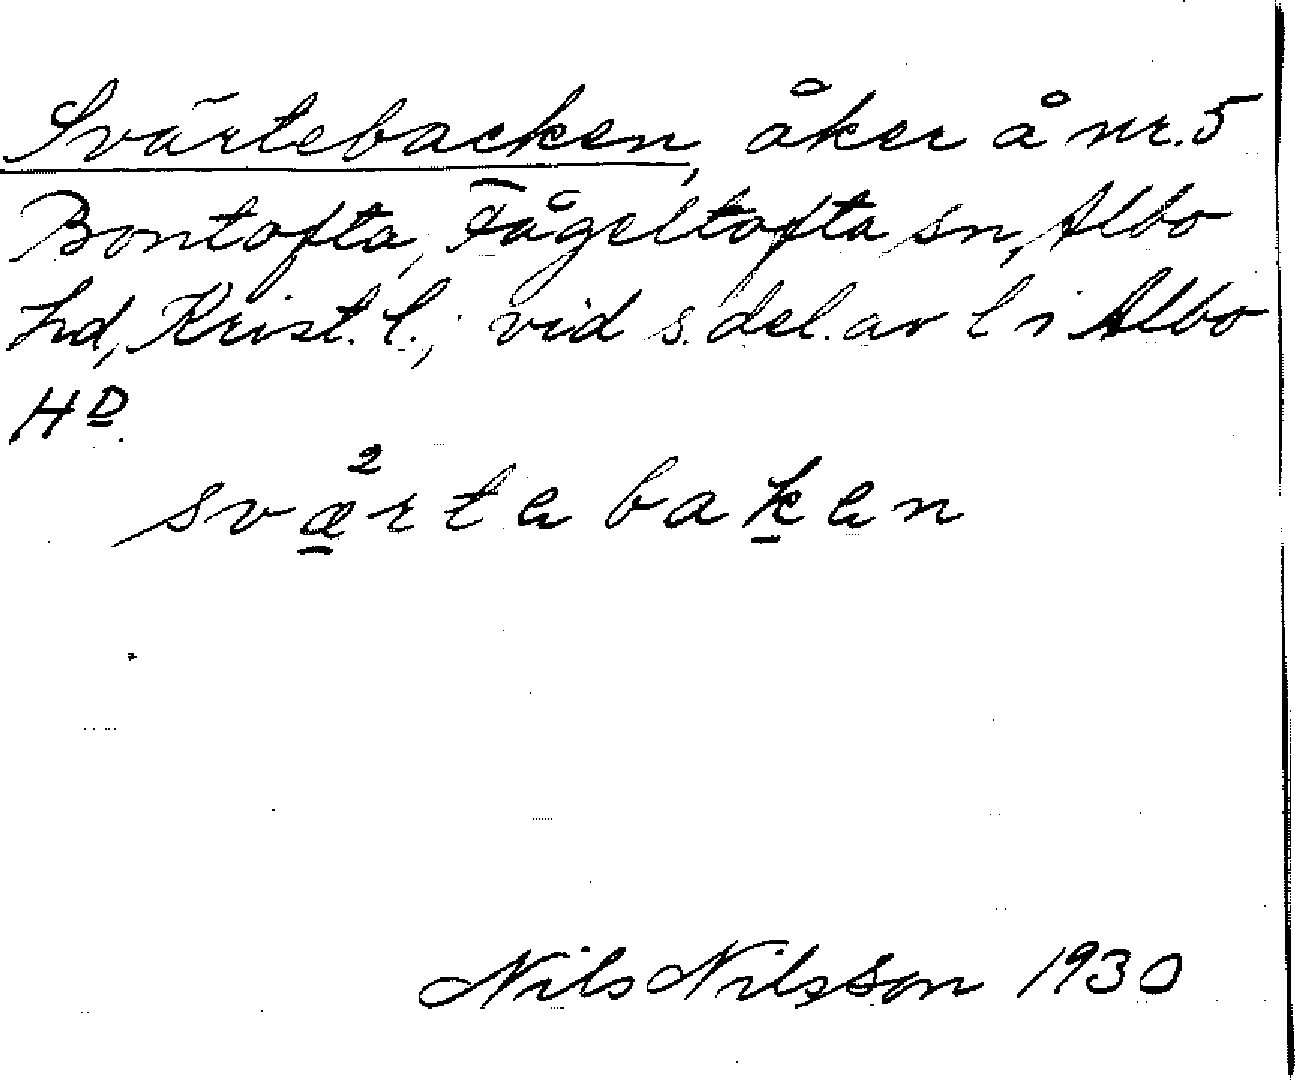 Svärtebacken, åker å nr. 5
Bontofta, Fågeltofta sn, Albo
hd, Krist. l.; vid s. del. av l i Albo
HD.
svæ²rte baken
Nils Nilsson 1930